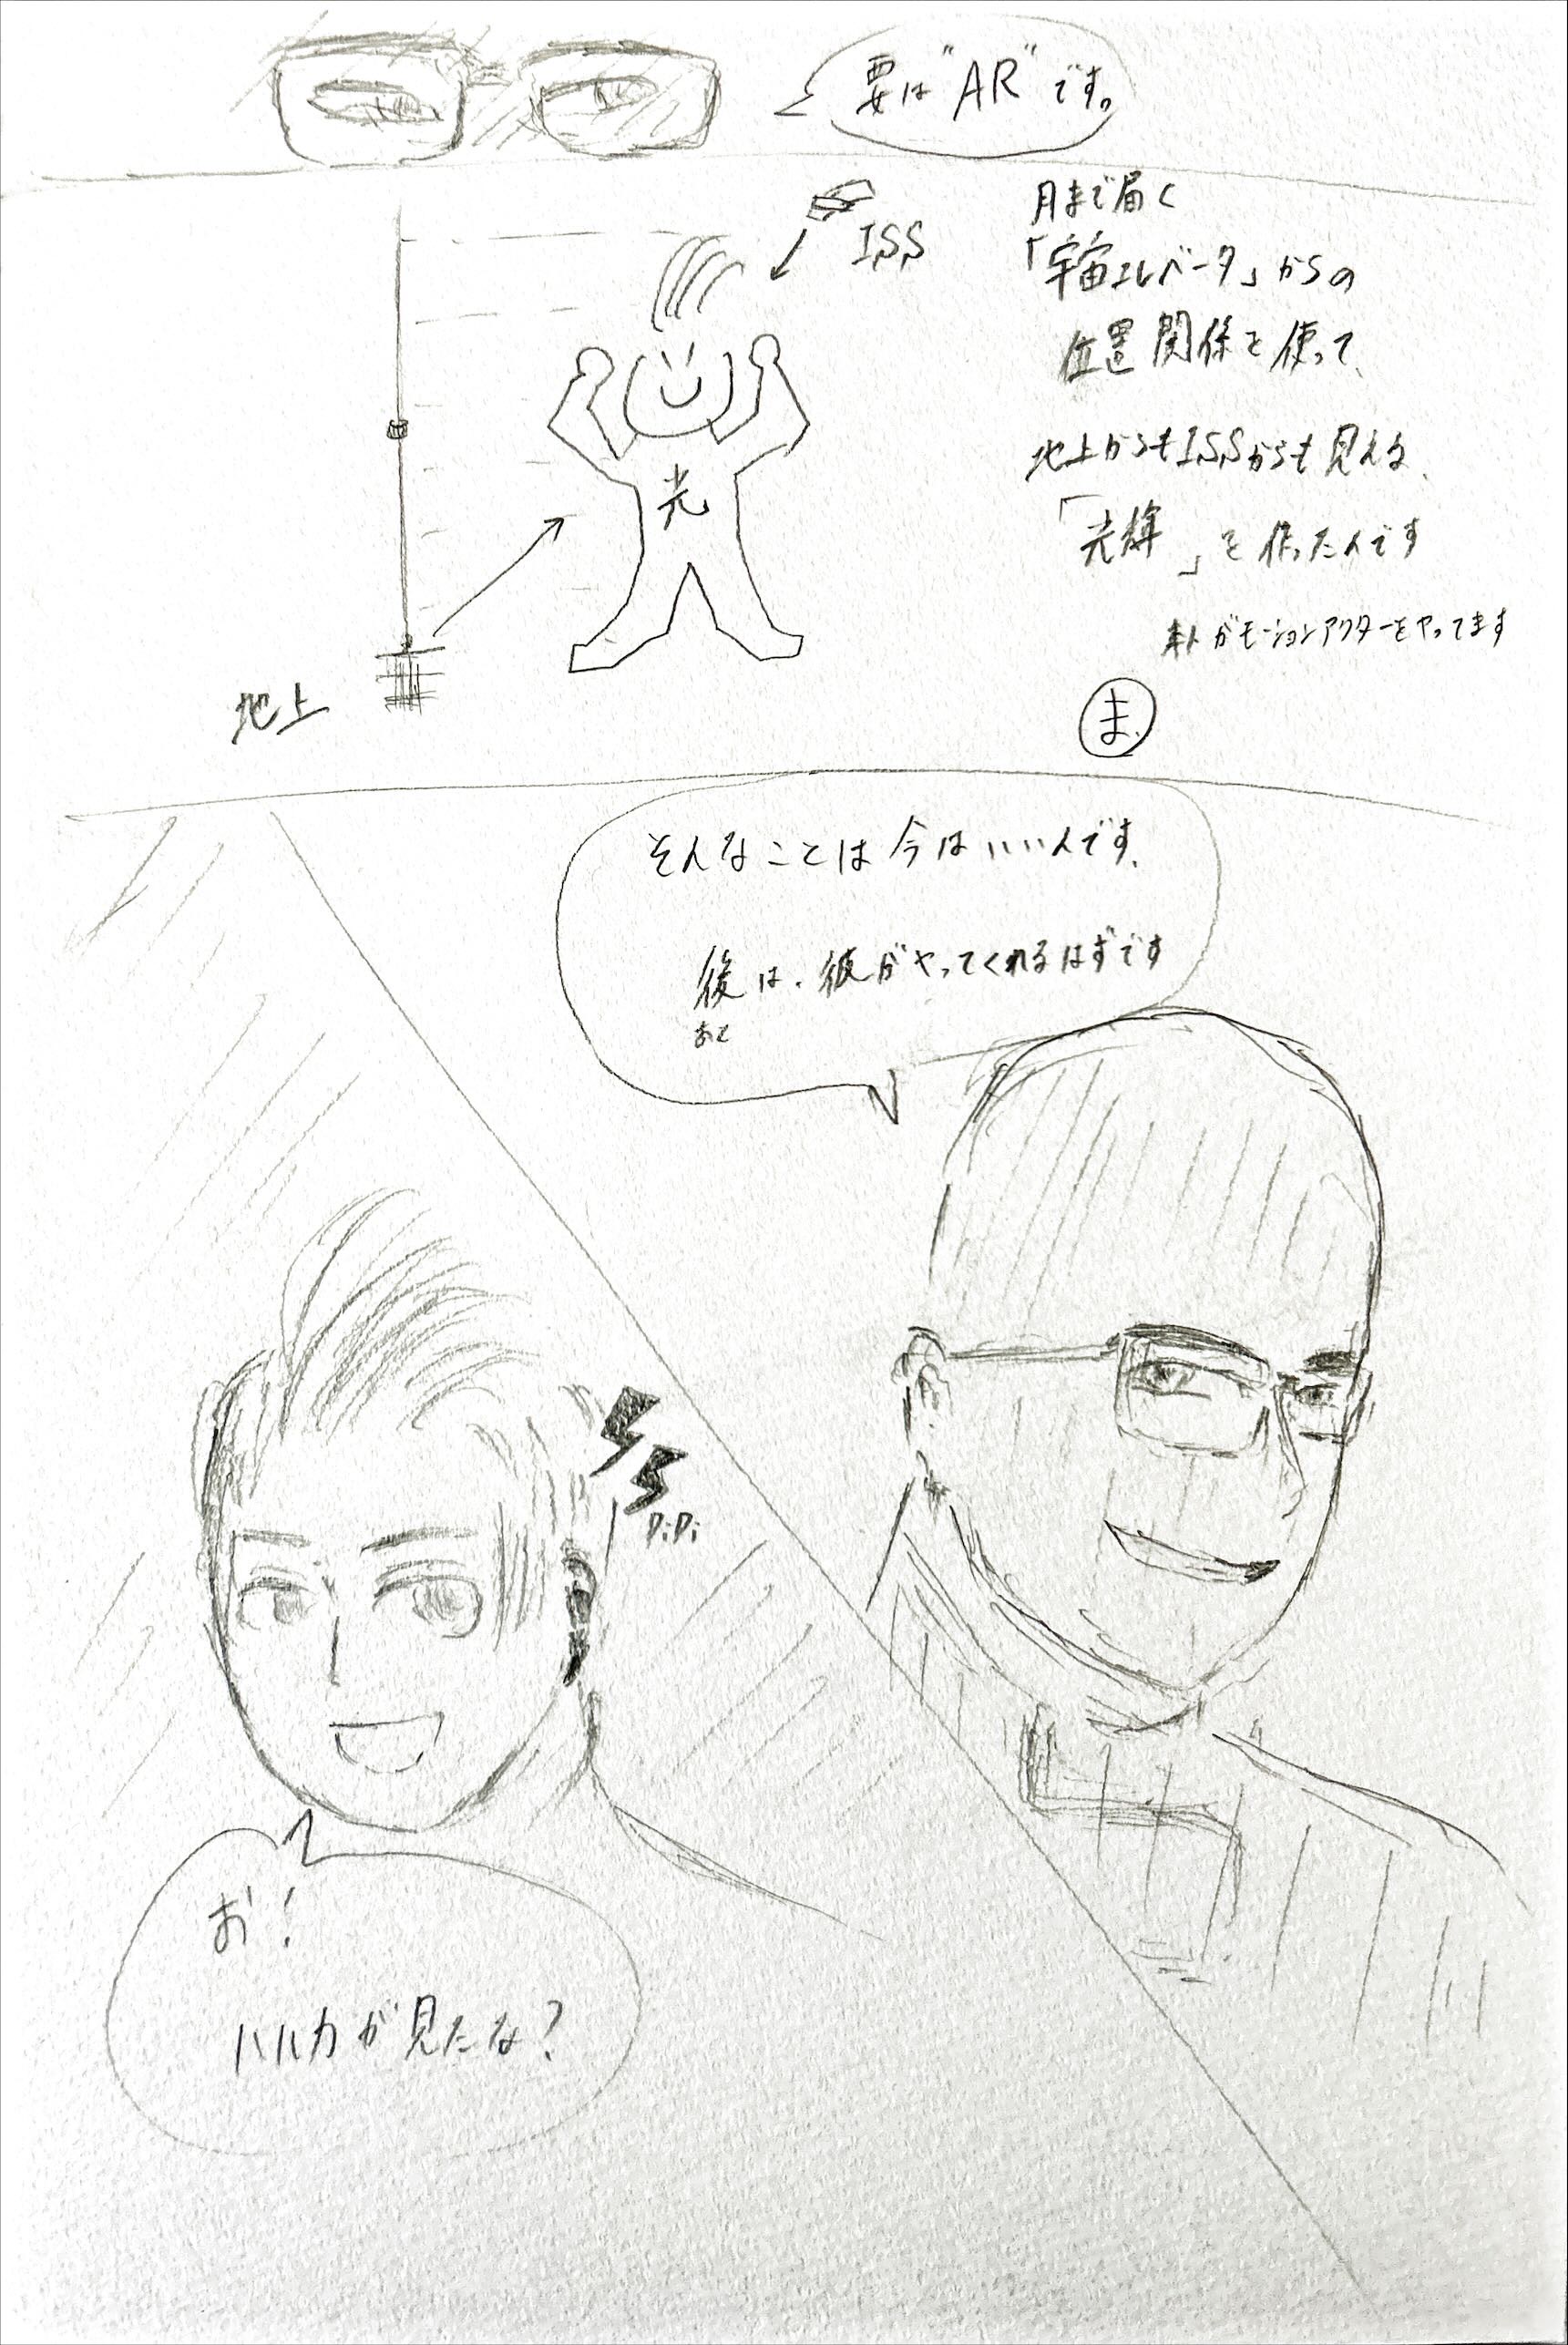 要は"AR"です。
月まで届く
「宇宙エレベータ」からの
位置関係を使って、
地上からもISSからも見える、
「光輝」を作ったんです
本人がモーションアクターをやってます
ISS
光
地上
ま、
そんなことは今はいいんです、
後は、彼がやってくれるはずです
あと
PiPi
お!
ハルカが見たな?